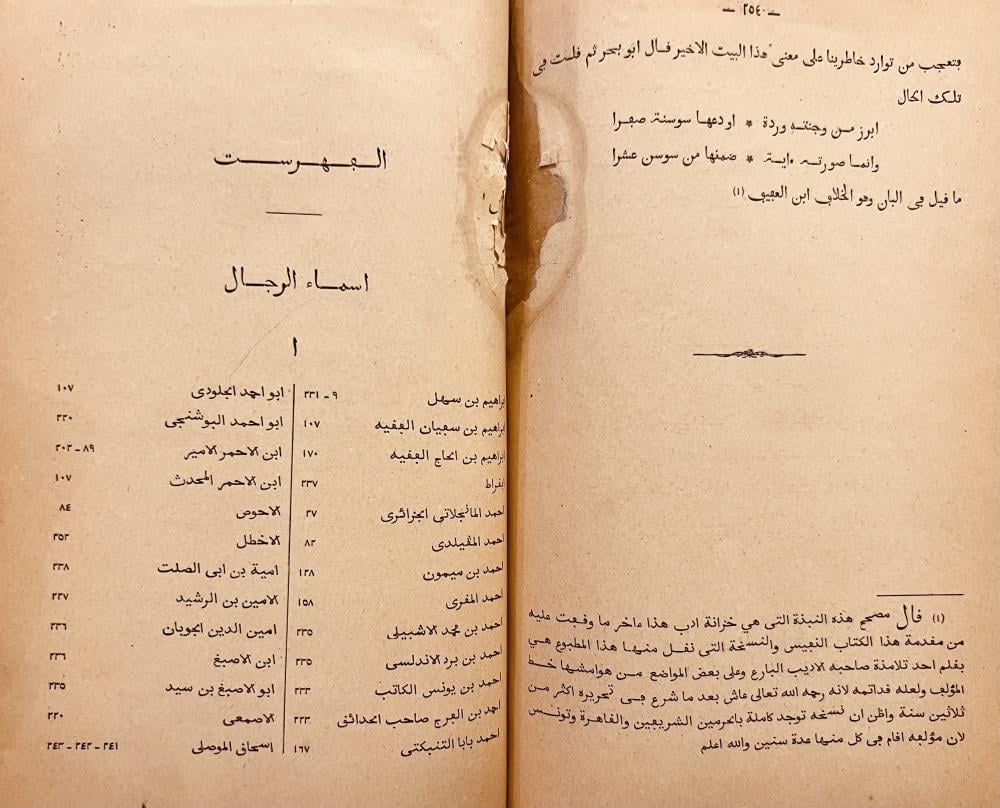 — ٢٥٤ —
فتعجب من توارد خاطرينا على معنى هذا البيت الاخير قال ابو بحر ثم قلت في
تلك الحال
ابرز من وجنته وردة * اودعها سوسنة صفرا
وانما صورته ءاية * ضمنها من سوسن عشرا
ما قيل في البان وهو الخلاف ابن العفيف (١)
(١) قال مصحح هذه النبذة التى هي خزانة ادب هذا ءاخر ما وقفت عليه
من مقدمة هذا الكتاب النفيس والنسخة التى نقل منها هذا المطبوع هي
بقلم احد تلامذة صاحبه الاديب البارع وعلى بعض المواضع من هوامشها خط
المؤلف ولعله فداتمه لانه رحمه الله تعالى عاش بعد ما شرع في تحريره اكثر من
ثلاثين سنة واظن ان نسخه توجد كاملة بالحرمين الشريفين والقاهرة وتونس
لان مؤلفه اقام في كل منها عدة سنين والله اعلم
الفهرست
اسماء الرجال
ا
ابراهيم بن سهل ٩ - ٢٣١
ابراهيم بن سفيان الفقيه ١٠٧
ابراهيم بن الحاج الفقيه ١٧٠
ابقراط ٢٣٧
احمد المانجلاتى الجزائرى ٣٧
احمد المقيلدى ٨٣
احمد بن ميمون ١٢٨
احمد المقرى ١٥٨
احمد بن محمد الاشبيلى ٢٣٥
احمد بن برد الاندلسى ٢٣٥
احمد بن يونس الكاتب ٢٣٣
احمد بن الفرج صاحب الحدائق ٢٢٣
احمد بابا التنبكتى ١٦٧
ابو احمد الجلودى ١٠٧
ابو احمد البوشنجى ٢٢٠
ابن الاحمر الامير ٨٩ - ٢٠٢
ابن الاحمر المحدث ١٠٧
الاحوص ٨٤
الاخطل ٢٥٢
امية بن ابى الصلت ٢٣٨
الامين بن الرشيد ٢٢٧
امين الدين الجوبان ٢٣٦
ابن الاصبغ ٢٣٦
ابو الاصبغ بن سيد ٢٣٥
الاصمعى ٢٢٠
اسحاق الموصلى ٢٤١ - ٢٤٢ - ٢٤٣